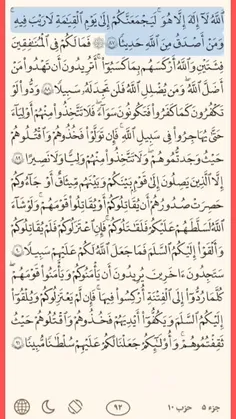 ٱللَّهُ لَآ إِلَٰهَ إِلَّا هُوَۚ لَيَجْمَعَنَّكُمْ إِلَىٰ يَوْمِ ٱلْقِيَٰمَةِ لَا رَيْبَ فِيهِۗ
وَمَنْ أَصْدَقُ مِنَ ٱللَّهِ حَدِيثًا ۝٨٧ ۞ فَمَا لَكُمْ فِى ٱلْمُنَٰفِقِينَ
فِئَتَيْنِ وَٱللَّهُ أَرْكَسَهُم بِمَا كَسَبُوٓا۟ۚ أَتُرِيدُونَ أَن تَهْدُوا۟ مَنْ
أَضَلَّ ٱللَّهُۖ وَمَن يُضْلِلِ ٱللَّهُ فَلَن تَجِدَ لَهُۥ سَبِيلًا ۝٨٨ وَدُّوا۟ لَوْ
تَكْفُرُونَ كَمَا كَفَرُوا۟ فَتَكُونُونَ سَوَآءًۖ فَلَا تَتَّخِذُوا۟ مِنْهُمْ أَوْلِيَآءَ
حَتَّىٰ يُهَاجِرُوا۟ فِى سَبِيلِ ٱللَّهِۚ فَإِن تَوَلَّوْا۟ فَخُذُوهُمْ وَٱقْتُلُوهُمْ
حَيْثُ وَجَدتُّمُوهُمْۖ وَلَا تَتَّخِذُوا۟ مِنْهُمْ وَلِيًّا وَلَا نَصِيرًا ۝٨٩
إِلَّا ٱلَّذِينَ يَصِلُونَ إِلَىٰ قَوْمٍۭ بَيْنَكُمْ وَبَيْنَهُم مِّيثَٰقٌ أَوْ جَآءُوكُمْ
حَصِرَتْ صُدُورُهُمْ أَن يُقَٰتِلُوكُمْ أَوْ يُقَٰتِلُوا۟ قَوْمَهُمْۚ وَلَوْ شَآءَ
ٱللَّهُ لَسَلَّطَهُمْ عَلَيْكُمْ فَلَقَٰتَلُوكُمْۚ فَإِنِ ٱعْتَزَلُوكُمْ فَلَمْ يُقَٰتِلُوكُمْ
وَأَلْقَوْا۟ إِلَيْكُمُ ٱلسَّلَمَ فَمَا جَعَلَ ٱللَّهُ لَكُمْ عَلَيْهِمْ سَبِيلًا ۝٩٠
سَتَجِدُونَ ءَاخَرِينَ يُرِيدُونَ أَن يَأْمَنُوكُمْ وَيَأْمَنُوا۟ قَوْمَهُمْ
كُلَّ مَا رُدُّوٓا۟ إِلَى ٱلْفِتْنَةِ أُرْكِسُوا۟ فِيهَاۚ فَإِن لَّمْ يَعْتَزِلُوكُمْ وَيُلْقُوٓا۟
إِلَيْكُمُ ٱلسَّلَمَ وَيَكُفُّوٓا۟ أَيْدِيَهُمْ فَخُذُوهُمْ وَٱقْتُلُوهُمْ حَيْثُ
ثَقِفْتُمُوهُمْۚ وَأُو۟لَٰٓئِكُمْ جَعَلْنَا لَكُمْ عَلَيْهِمْ سُلْطَٰنًا مُّبِينًا ۝٩١
جزء ۵ حزب ۱۰ ۹۲